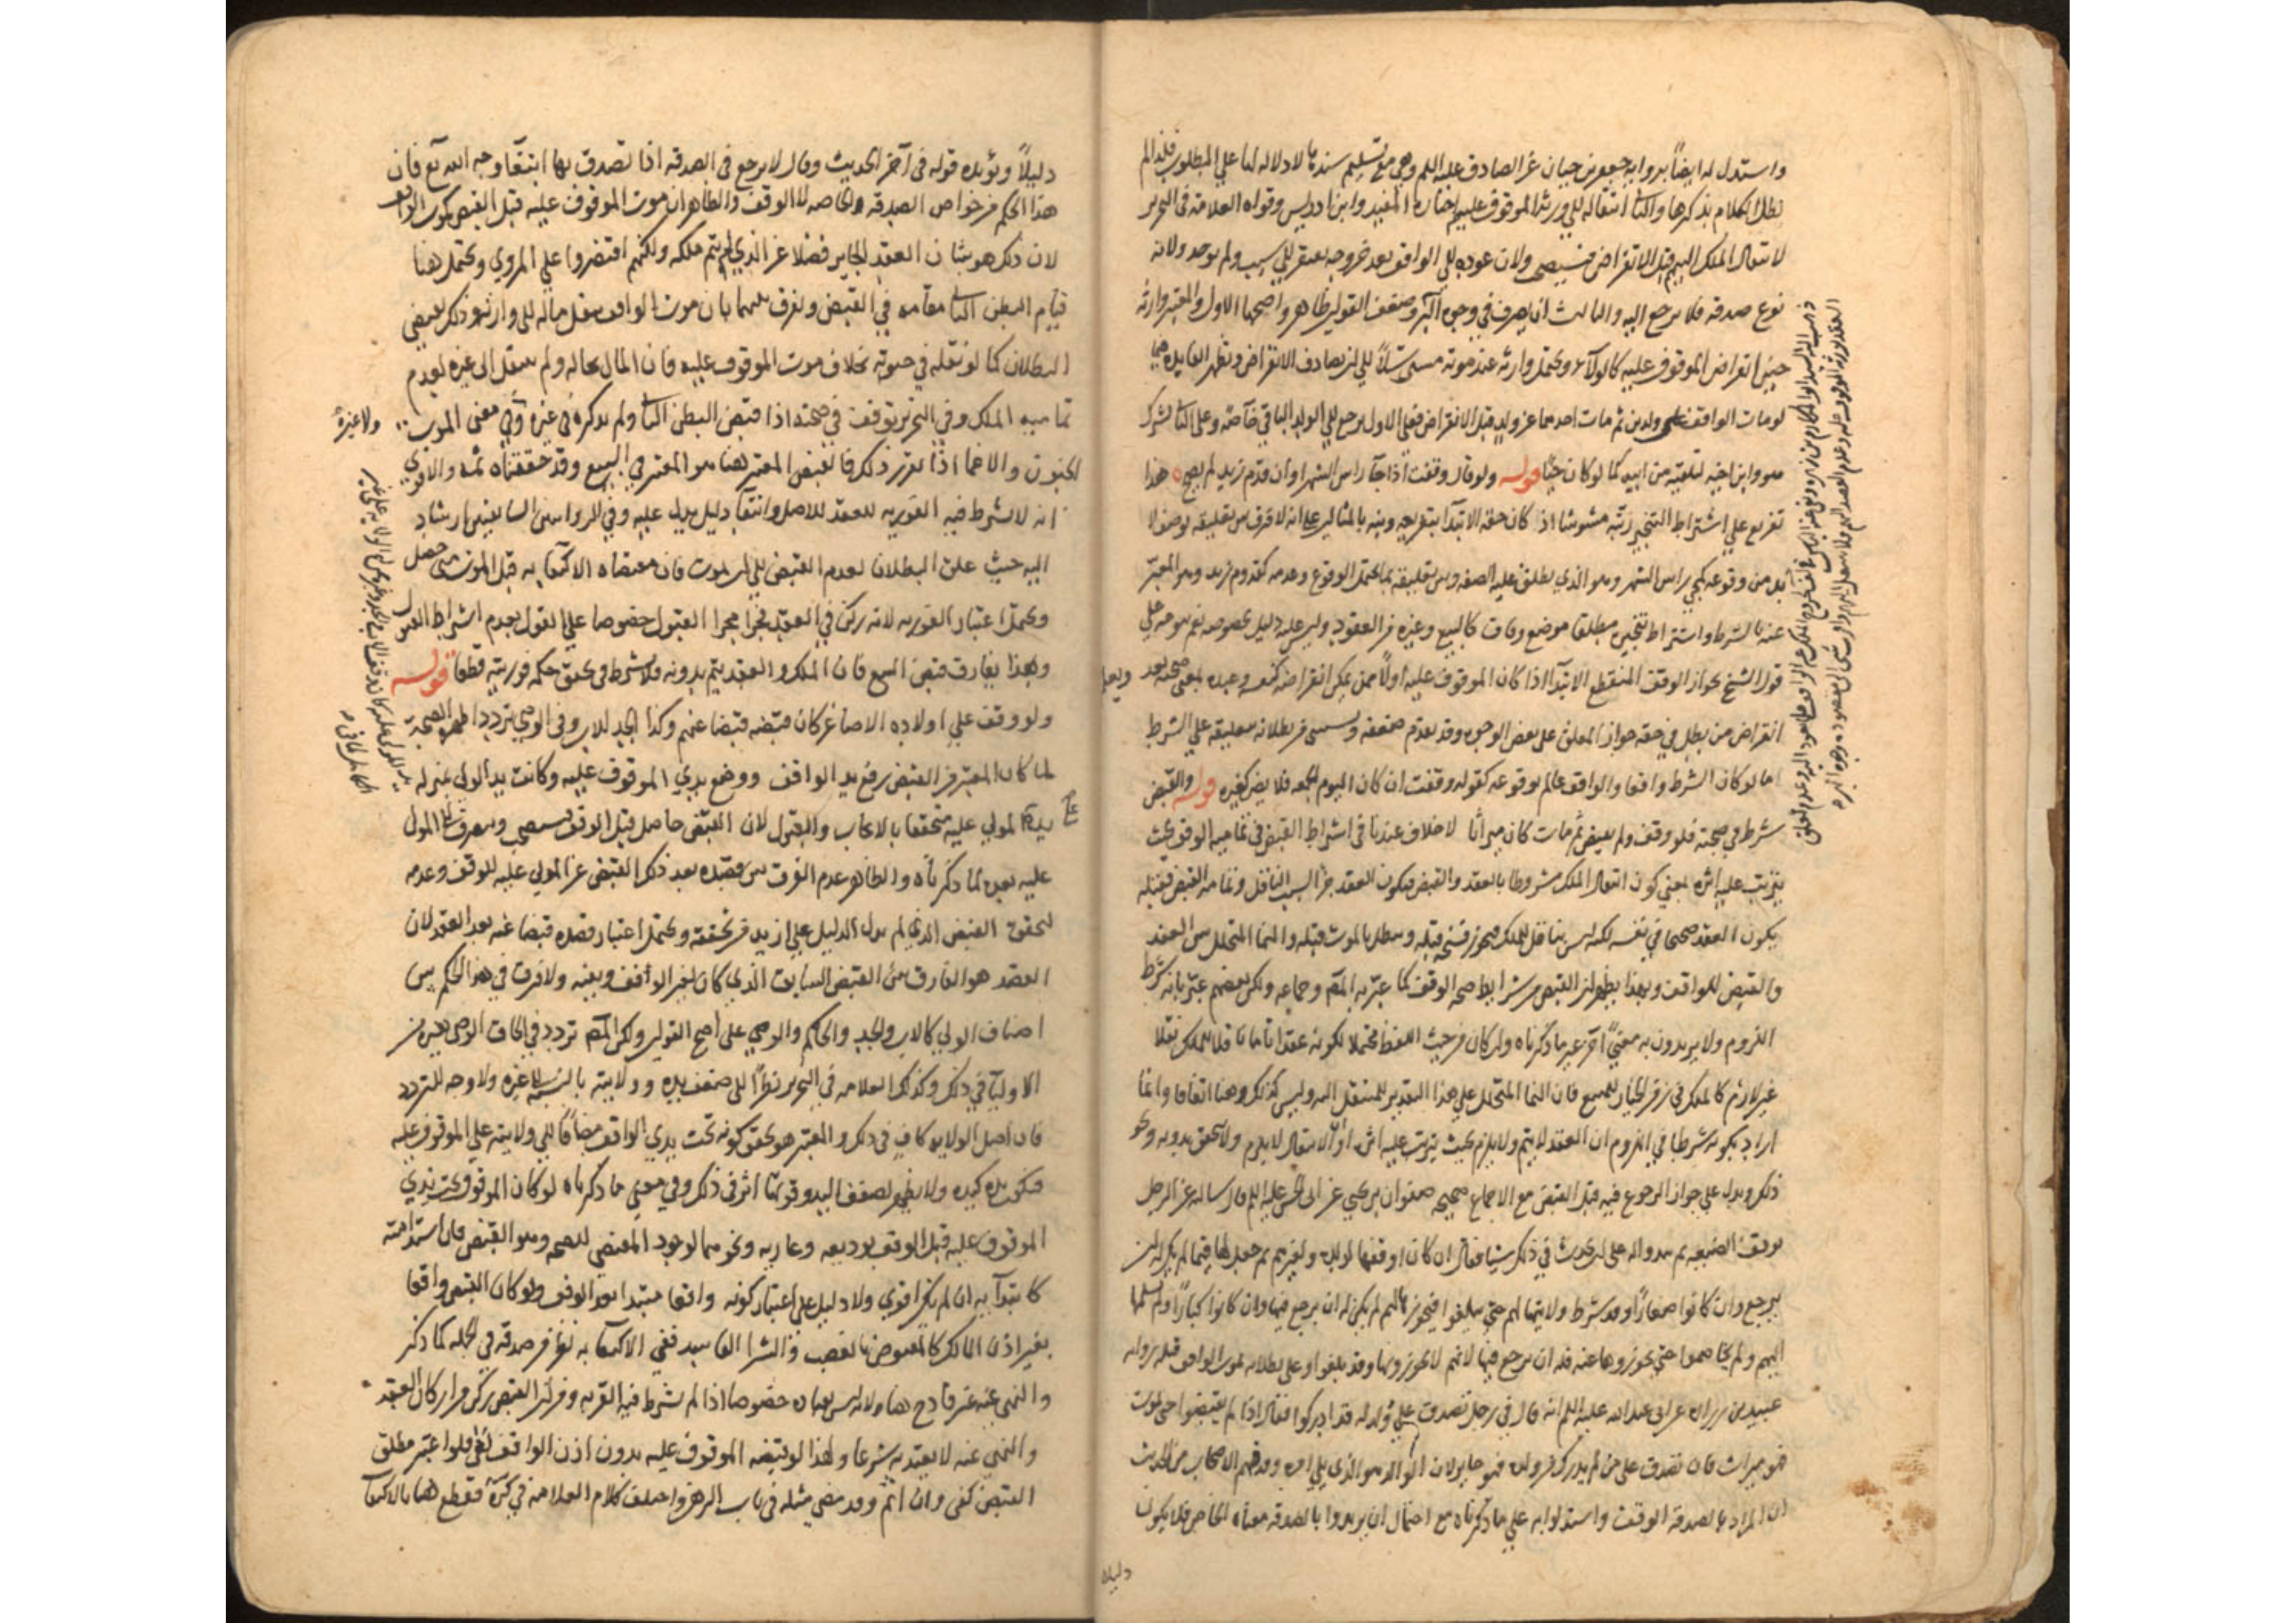 واستدل له ايضاً برواية جعفر بن حيان عن الصادق عليه السلم وهي مع تسليم سندها لا دلالة لها علي المطلوب فلذا لم
نطل الكلام بذكرها والثا انتقاله الي ورثة الموقوف عليهم اختاره المفيد وابن ادريس وقواه العلامة في التحرير
لانتقال الملك اليهم قبل الانقراض فيستصحب ولان عوده الي الواقف بعد خروجه يفتقر الي سبب ولم يوجد ولانه
نوع صدقة فلا يرجع اليه والثالث انه يصرف في وجوه البر وضعف القولين ظاهر واصحها الاول والمعتبر وارثه
حين انقراض الموقوف عليه كالولاء ويحتمل وارثه عند موته مسترسلاً الي ان يصادف الانقراض وتظهر الفايده فيما
لو مات الواقف عن ولدين ثم مات احدهما عن ولد قبل الانقراض فعلي الاول يرجع الي الولد الباقي خاصة وعلي الثا يشترك
هو وابن اخيه لتلقيه من ابيه كما لو كان حيًا قوله ولو قال وقفت اذا جآ راس الشهر او ان قدم زيد لم يصح هذا
تفريع علي اشتراط التنجيز رتبه مشوشا اذ كان حقه الابتدآ بتفريعه ونبه بالمثالين علي انه لا فرق بين تعليقه بوصف لا
بد من وقوعه كمجي راس الشهر وهو الذي يطلق عليه الصفه وبين تعليقه بما يحتمل الوقوع وعدمه كقدوم زيد وهو المعبر
عنه بالشرط واشتراط تنجيزه مطلقا موضع وفاق كالبيع وغيره من العقود وليس عليه دليل بخصوصه نعم يتوجه علي
قول الشيخ بجواز الوقف المنقطع الابتدآ اذا كان الموقوف عليه اولاً ممن يمكن انقراضه كنفسه وعبده بمعني صحته بعد
انقراض من بطل في حقه جواز المعلق علي بعض الوجوه وقد تقدم ضعفه ويستثني من بطلانه بتعليقه علي الشرط
اما لو كان الشرط واقعا والواقف عالم بوقوعه كقوله وقفت ان كان اليوم الجمعه فلا يضر كغيره قوله والقبض
شرط في صحته فلو وقف ولم يقبض ثم مات كان ميراثا لا خلاف عندنا في اشتراط القبض في تمامية الوقف بحيث
يترتب عليه اثره بمعني كون انتقال الملك مشروطا بالعقد والقبض فيكون العقد جزأ السبب الناقل وتمامه القبض فقبله
يكون العقد صحيحا في نفسه لكنه ليس بناقل للملك فيجوز فسخه قبله ويبطل بالموت قبله والنما المتخلل بين العقد
والقبض للواقف وبهذا يظهر ان القبض من شرايط صحة الوقف كما عبر به المصم وجماعه ولكن بعضهم عبر بانه شرط
اللزوم ولا يريدون به معنيً آخر غير ما ذكرناه وان كان من حيث اللفظ محتملا لكونه عقدا تاما ناقلا للملك نقلا
غير لازم كالملك في زمن الخيار للمبيع فان النما المتخلل علي هذا التقدير للمنتقل اليه وليس كذلك وهنا اتفاقا وانما
اراد بكونه شرطا في اللزوم ان العقد لا يتم ولا يلزم بحيث يترتب عليه اثره او ان الانتقال لا يلزم ولا يتحقق بدونه ونحو
ذلك ويدل علي جواز الرجوع فيه قبل القبض مع الاجماع صحيحة صفوان بن يحيي عن ابي الحسن عليه السلم قال سالته عن الرجل
يوقف الضيعه ثم يبدو له علي ان يحدث في ذلك شيا فقال ان كان اوقفها لولده ولغيرهم ثم جعل لها قيما لم يكن له ان
يرجع وان كانوا صغاراً وقد شرط ولايتها لهم حتي يبلغوا فيحوزها لهم لم يكن له ان يرجع فيها وان كانوا كباراً ولم يسلمها
اليهم ولم يخاصموا حتي يحوزوها عنه فله ان يرجع فيها لانهم لا يحوزونها وقد بلغوا وعلي بطلانه بموت الواقف قبله رواية
عبيد بن زراره عن ابي عبدالله عليه السلم انه قال في رجل تصدق علي ولد له قد ادركوا فقال اذا لم يقبضوا حتي يموت
فهو ميراث فان تصدق علي من لم يدرك من ولده فهو جايز لان الوالد هو الذي يلي امره وقد فهم الاصحاب من الحديث
ان المراد بالصدقة الوقف واستدلوا به علي ما ذكرناه مع احتمال ان يريدوا بالصدقه معناه الخاص فلا يكون
دليلا
دليلاً ويؤيده قوله في آخر الحديث وقال لا يرجع في الصدقه اذا تصدق بها ابتغآ وجه الله تع فان
هذا الحكم من خواص الصدقه الخاصه لا الوقف والظاهر ان موت الموقوف عليه قبل القبض كموت الواقف
لان ذلك هو شان العقد الجايز فضلا عن الذي لم يتم ملكه ولكنهم اقتصروا علي المروي ويحتمل هنا
قيام البطن الثا مقامه في القبض ويفرق بينهما بان موت الواقف ينقل ماله الي وارثه وذلك يقتضي
البطلان كما لو نقله في حيوته بخلاف موت الموقوف عليه فان المال بحاله ولم ينتقل الي غيره لعدم
تمامية الملك وفي التحرير توقف في صحته اذا قبض البطن الثا ولم يذكره في غيره وفي معني الموت
الجنون والاغما اذا تقرر ذلك فالقبض المعتبر هنا هو المعتبر في البيع وقد حققناه ثمه والاقوي
انه لا يشترط فيه الفوريه للعقد للاصل وانتفآ دليل يدل عليه وفي الروايتين السابقتين ارشاد
اليه حيث علق البطلان بعدم القبض الي ان يموت فان مقتضاه الاكتفآ به قبل الموت متي حصل
ويحتمل اعتبار الفوريه لانه ركن في العقد فجرا مجرا القبول خصوصا علي القول بعدم اشتراط القبول
وبهذا يفارق قبض البيع فان الملك والعقد يتم بدونه فلا يشترط في تحقق حكمه فوريته قطعا قوله
ولو وقف علي اولاده الاصاغر كان قبضه قبضا عنهم وكذا الجد للاب وفي الوصي تردد اظهره الصحة
لما كان المعتبر من القبض رفع يد الواقف ووضع يدي الموقوف عليه وكانت يد الولي بمنزله
يد المولي عليه متحققا بالايجاب والقبول لان القبض حاصل قبل الوقف فيستصحب وينصرف الي المولي
عليه بعده لما ذكرناه والظاهر عدم الفرق بين قصده بعد ذلك القبض عن المولي عليه للوقف وعدمه
لتحقق القبض الذي لم يدل الدليل علي ازيد من تحققه ويحتمل اعتبار قصده قبضا عنه بعد العقد لان
القصد هو الفارق بين القبض السابق الذي كان لغير الواقف وبعينه ولا فرق في هذا الحكم بين
اصناف الولي كالاب والجد والحاكم والوصي علي اصح القولين ولكن المصم تردد في الحاق الوصي بغيره من
الاوليآ في ذلك وكذلك العلامه في التحرير نظراً الي ضعف يده وولايته بالنسبة الي غيره ولا وجه للتردد
فان اصل الولاية كاف في ذلك والمعتبر هو تحقق كونه تحت يدي الواقف مضافًا الي ولايته علي الموقوف عليه
فتكون يده كيده ولا يظهر لضعف اليد وقوتها اثر في ذلك وفي معني ما ذكرناه لو كان الموقوف تحت يدي
الموقوف عليه قبل الوقف بوديعه وعاريه ونحوهما لوجود المقتضي للصحه وهو القبض فان استدامته
كابتدآيه ان لم يكن اقوي ولا دليل علي اعتبار كونه واقعا مبتدا بعد الوقف ولو كان القبض واقعا
بغير اذن المالك كالمقبوض بالغصب والشرا الفاسد ففي الاكتفآ به نظر من صدقه في الجمله كما ذكر
والنهي عنه غير قادح هنا ولانه ليس بعباده خصوصا اذا لم نشترط فيه القربه ومن ان القبض ركن من اركان العقد
والنهي عنه لا يعتد به شرعا ولهذا لو قبضه الموقوف عليه بدون اذن الواقف لغي فلو اعتبر مطلق
القبض كفي وان اثم وقد مضي مثله في باب الرهن واختلف كلام العلامة في كره فقطع هنا بالاكتفآ